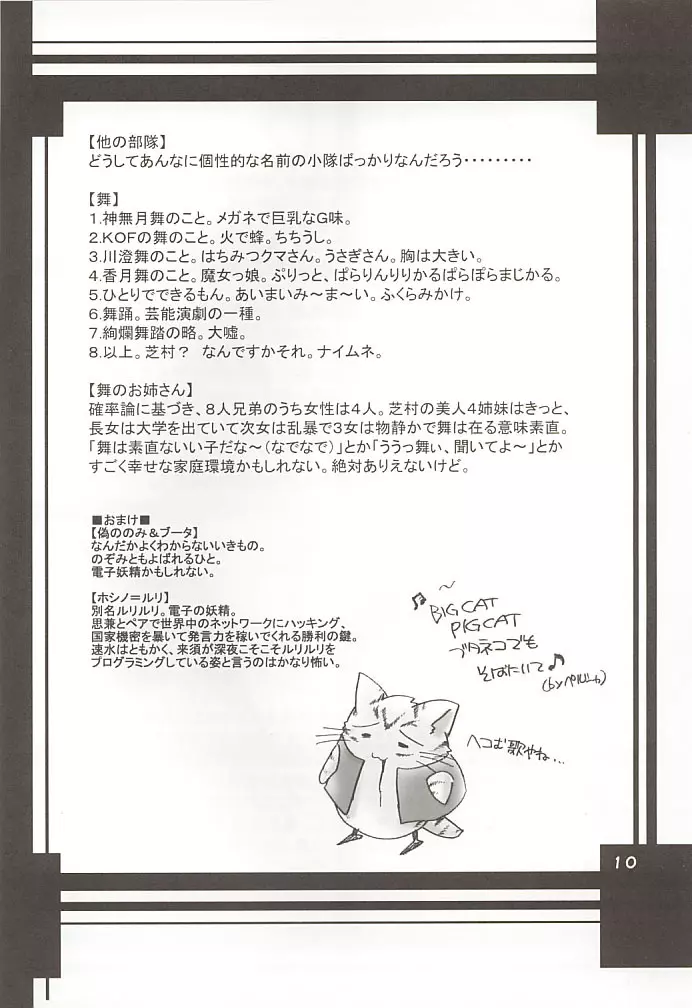 【他の部隊】
どうしてあんなに個性的な名前の小隊ばっかりなんだろう・・・・・・・・・
【舞】
1.神無月舞のこと。メガネで巨乳なG味。
2.KOFの舞のこと。火で蜂。ちちうし。
3.川澄舞のこと。はちみつクマさん。うさぎさん。胸は大きい。
4.香月舞のこと。魔女っ娘。ぷりっと、ぱらりんりりかるぱらぽらまじかる。
5.ひとりでできるもん。あいまいみ～ま～い。ふくらみかけ。
6.舞踊。芸能演劇の一種。
7.絢爛舞踏の略。大嘘。
8.以上。芝村？　なんですかそれ。ナイムネ。
【舞のお姉さん】
確率論に基づき、８人兄弟のうち女性は４人。芝村の美人４姉妹はきっと、
長女は大学を出ていて次女は乱暴で３女は物静かで舞は在る意味素直。
「舞は素直ないい子だな～（なでなで）」とか「ううっ舞ぃ、聞いてよ～」とか
すごく幸せな家庭環境かもしれない。絶対ありえないけど。
■おまけ■
【偽ののみ＆ブータ】
なんだかよくわからないいきもの。
のぞみともよばれるひと。
電子妖精かもしれない。
【ホシノ＝ルリ】
別名ルリルリ。電子の妖精。
思兼とペアで世界中のネットワークにハッキング、
国家機密を暴いて発言力を稼いでくれる勝利の鍵。
速水はともかく、来須が深夜こそこそルリルリを
プログラミングしている姿と言うのはかなり怖い。
♪～
BIG CAT
PIG CAT
ブタネコでも
そばにいて♪
ヘコむ歌やね...
10